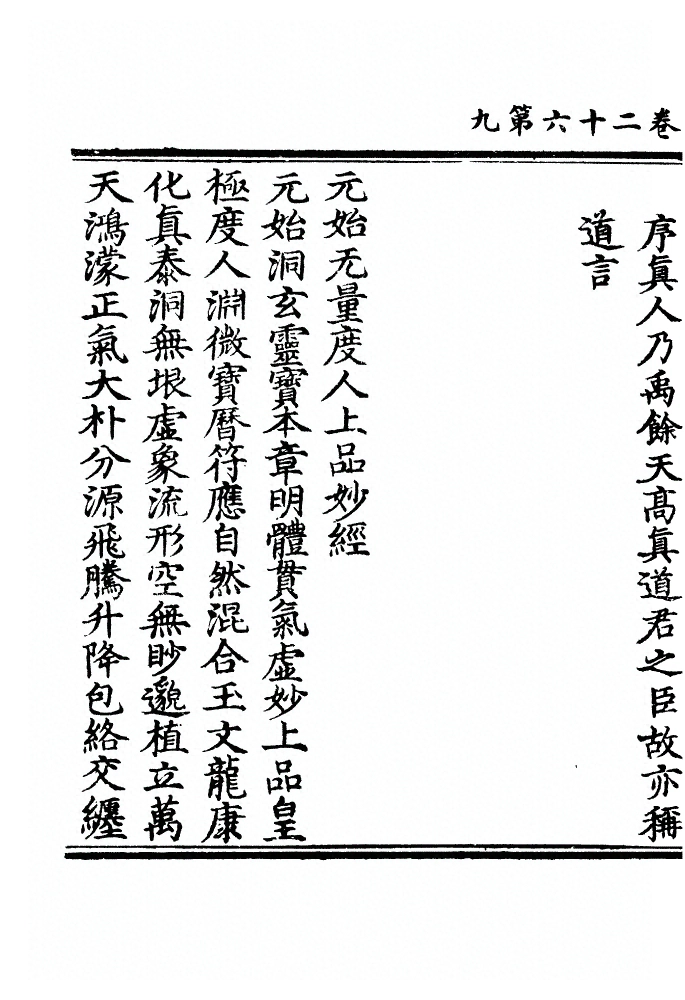 卷二十六第九
序眞人乃禹餘天高眞道君之臣故亦稱
道言
元始无量度人上品妙經
元始洞玄靈寶本章明體貫氣虛妙上品皇
極度人淵微寶曆符應自然混合玉文龍康
化眞泰洞無垠虛象流形空無眇邈植立萬
天鴻濛正氣大朴分源飛騰升降包絡交纏